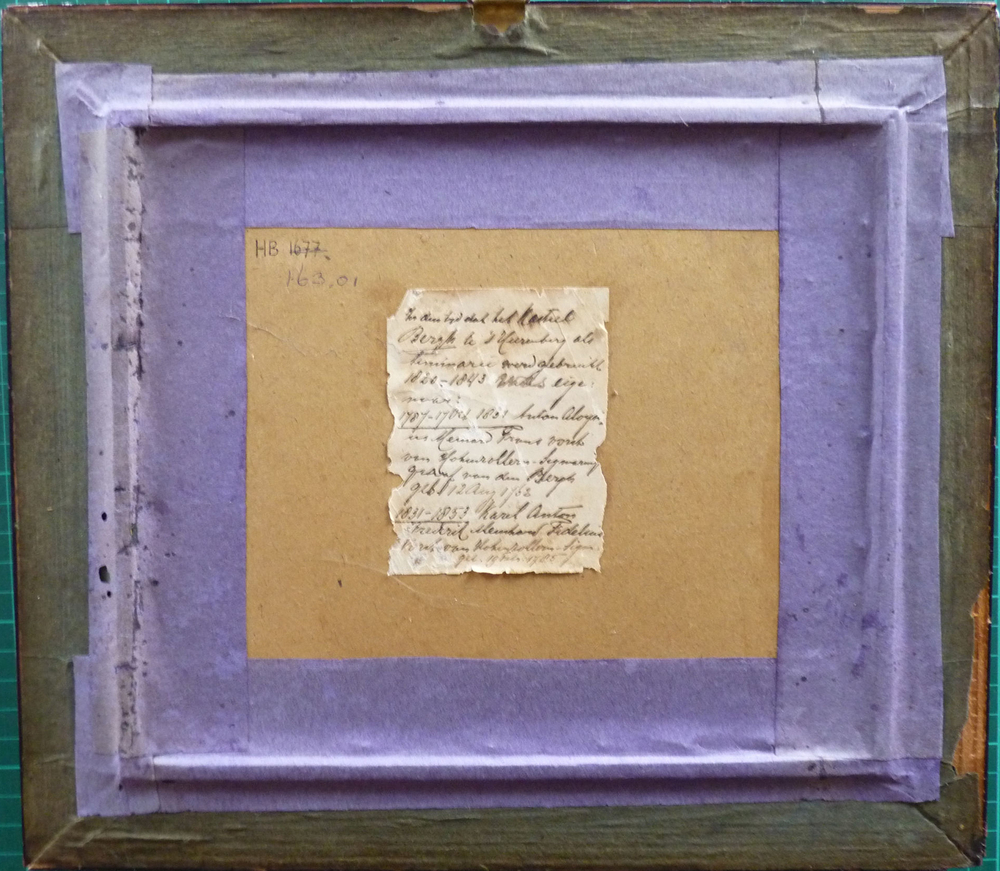 HB 1677.
163.01
In den tyd dat het Kasteel
Bergh te s'Heerenberg als
Seminarie werd gebruikt
1828-1843 was eige:
naar:
1787-17 Oct 1831 Anton Aloys
ius Meinard Frans vorst
von Hohenzollern-Sigmaring
graaf van den Bergh
geb. 12 Aug 1762
1831-1853 Karel Anton
Frederik Meinhard Fidelius
Vorst van Hohenzollern-Sigm
geb.